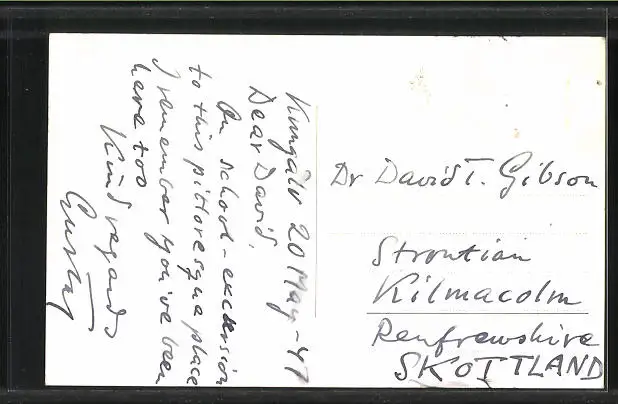 Kungälv 20 May -47
Dear David,
On school-excursion
to this pittoresque place
I remember you've been
here too
Kind regards
Gustaf
Dr David T. Gibson
Strontian
Kilmacolm
Renfrewshire
SKOTTLAND